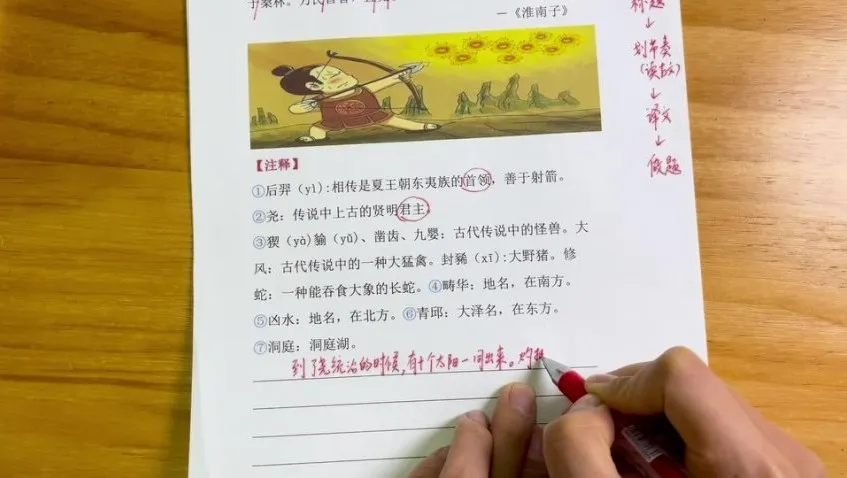 于桑林。万民
—《淮南子》
【注释】
①后羿（yì）:相传是夏王朝东夷族的首领，善于射箭。
②尧：传说中上古的贤明君主。
③猰（yà）貐（yǔ）、凿齿、九婴：古代传说中的怪兽。大
风：古代传说中的一种大猛禽。封豨（xī）:大野猪。修
蛇：一种能吞食大象的长蛇。④畴华：地名，在南方。
⑤凶水：地名，在北方。⑥青邱：大泽名，在东方。
⑦洞庭：洞庭湖。
到了尧统治的时候，有十个太阳一同出来。灼热
标题
↓
划节奏
（读古文）
↓
译文
↓
做题